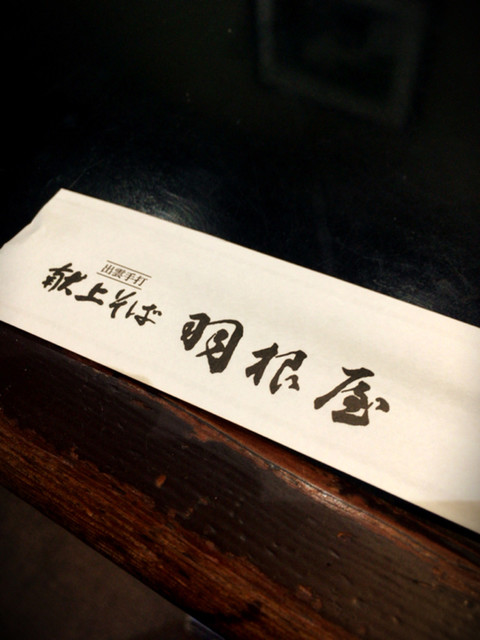 出雲手打
献上そば
羽根屋